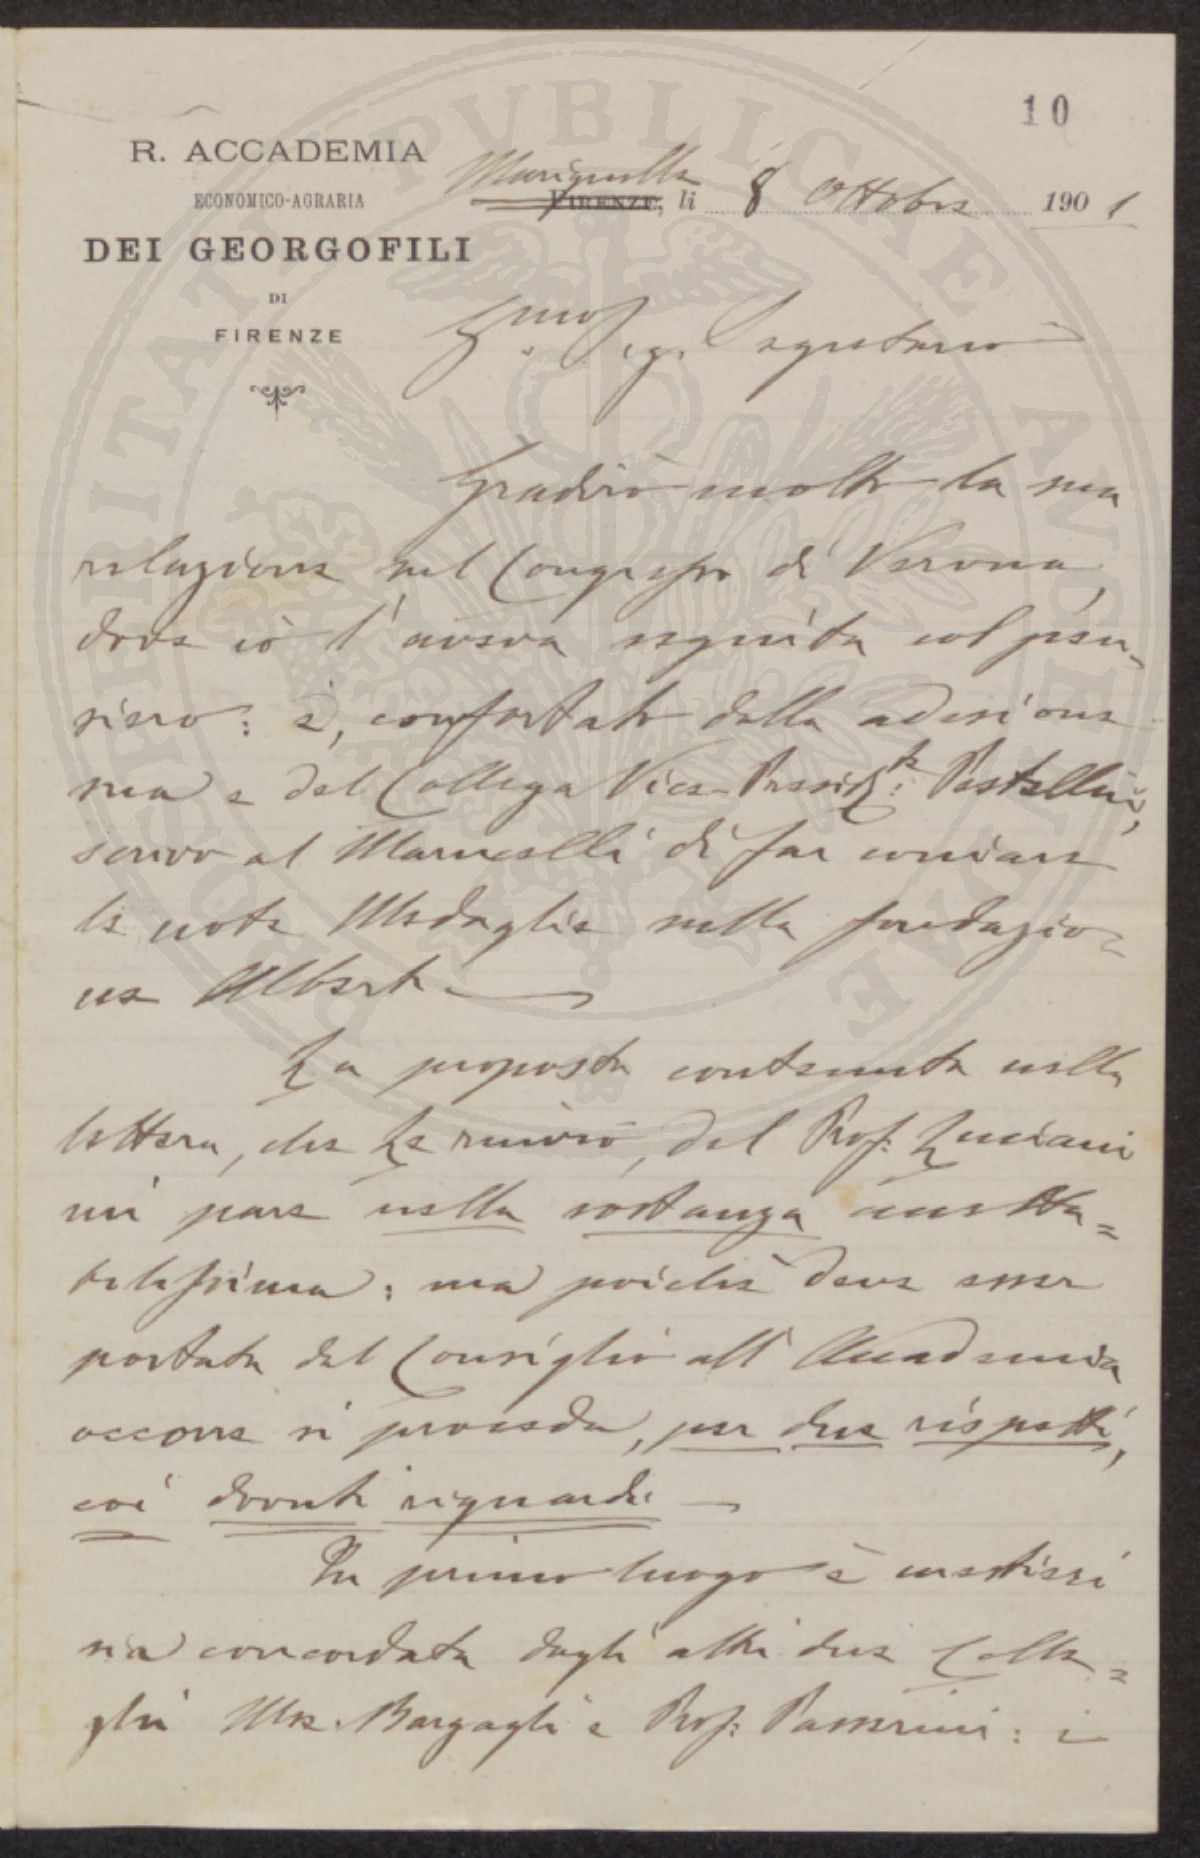 10
R. ACCADEMIA
ECONOMICO-AGRARIA
DEI GEORGOFILI
DI
FIRENZE
Marignolle
FIRENZE, li 8 Ottobre 1901
Sig. Segretario
Gradirò molto la sua
relazione sul Congresso di Verona,
dove io l'aveva seguita col pen-
siero: e, confortato dalla adesione
sua e del Collega Vice-Presidte Pestellini,
scrivo al Marucelli di far coniare
le note Medaglie nella fondazio-
ne Alberti
La proposta contenuta nella
lettera, che Le rinvio, del Prof: Luciani
mi pare nella sostanza accetta=
bilissima: ma poichè deve esser
portata dal Consiglio all'Accademia
occorre si proceda, per due rispetti,
coi dovuti riguardi.
In primo luogo è mestieri
sia concordata dagli altri due Colle=
ghi Mse. Bargagli e Prof: Passerini: e
POSTERITATI PVBLICAE ANCHE DOVE